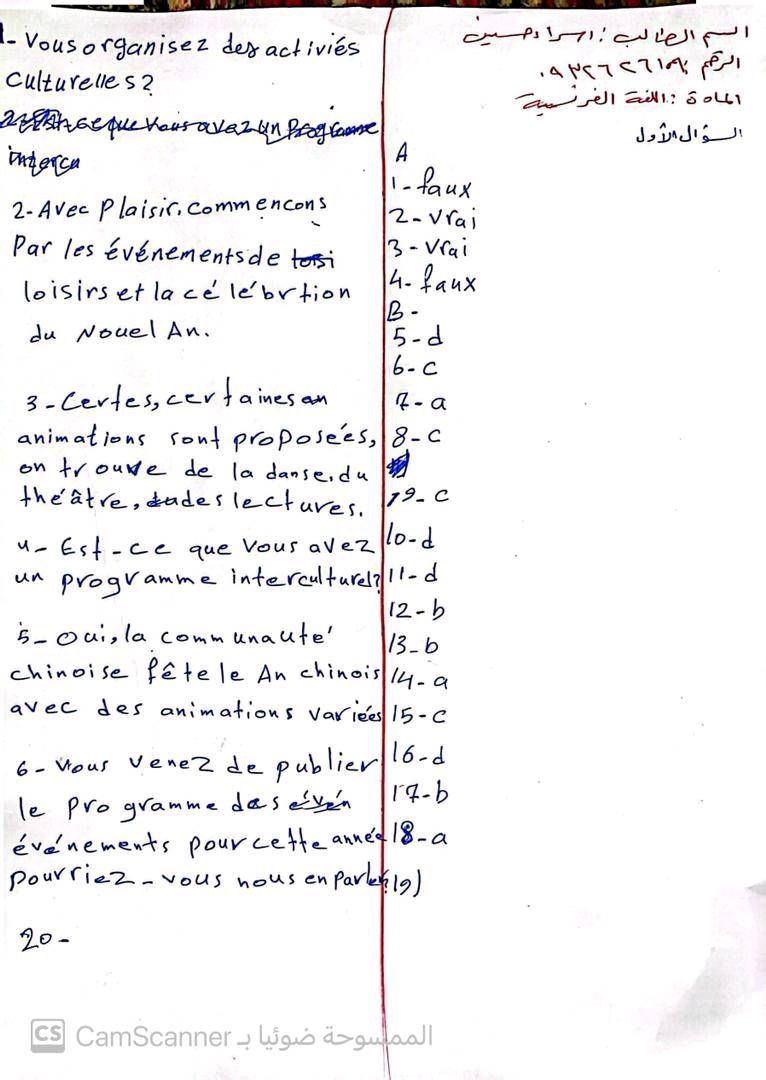 اسم الطالب : اسراء حسين
الرقم
المادة : اللغة الفرنسية
السؤال الأول
A
1- faux
2- vrai
3- vrai
4- faux
B -
5-d
6-c
7-a
8-c
9-c
10-d
11-d
12-b
13-b
14-a
15-c
16-d
17-b
18-a
19)
1- Vous organisez des activiés
culturelles?
2- Est-ce que vous avez un programe
intercu
2- Avec Plaisir. commencons
Par les événements de
loisirs et la célébrtion
du Nouel An.
3- Certes, certaines an
animations sont proposées,
on trouve de la danse, du
théâtre, des lectures.
4- Est-ce que vous avez
un programme interculturel?
5- Oui, la communauté
chinoise fête le An chinois
avec des animations variées
6- Vous venez de publier
le programme des évén
événements pour cette année
Pourriez-vous nous en parler?
20-
CS CamScanner الممسوحة ضوئيا بـ